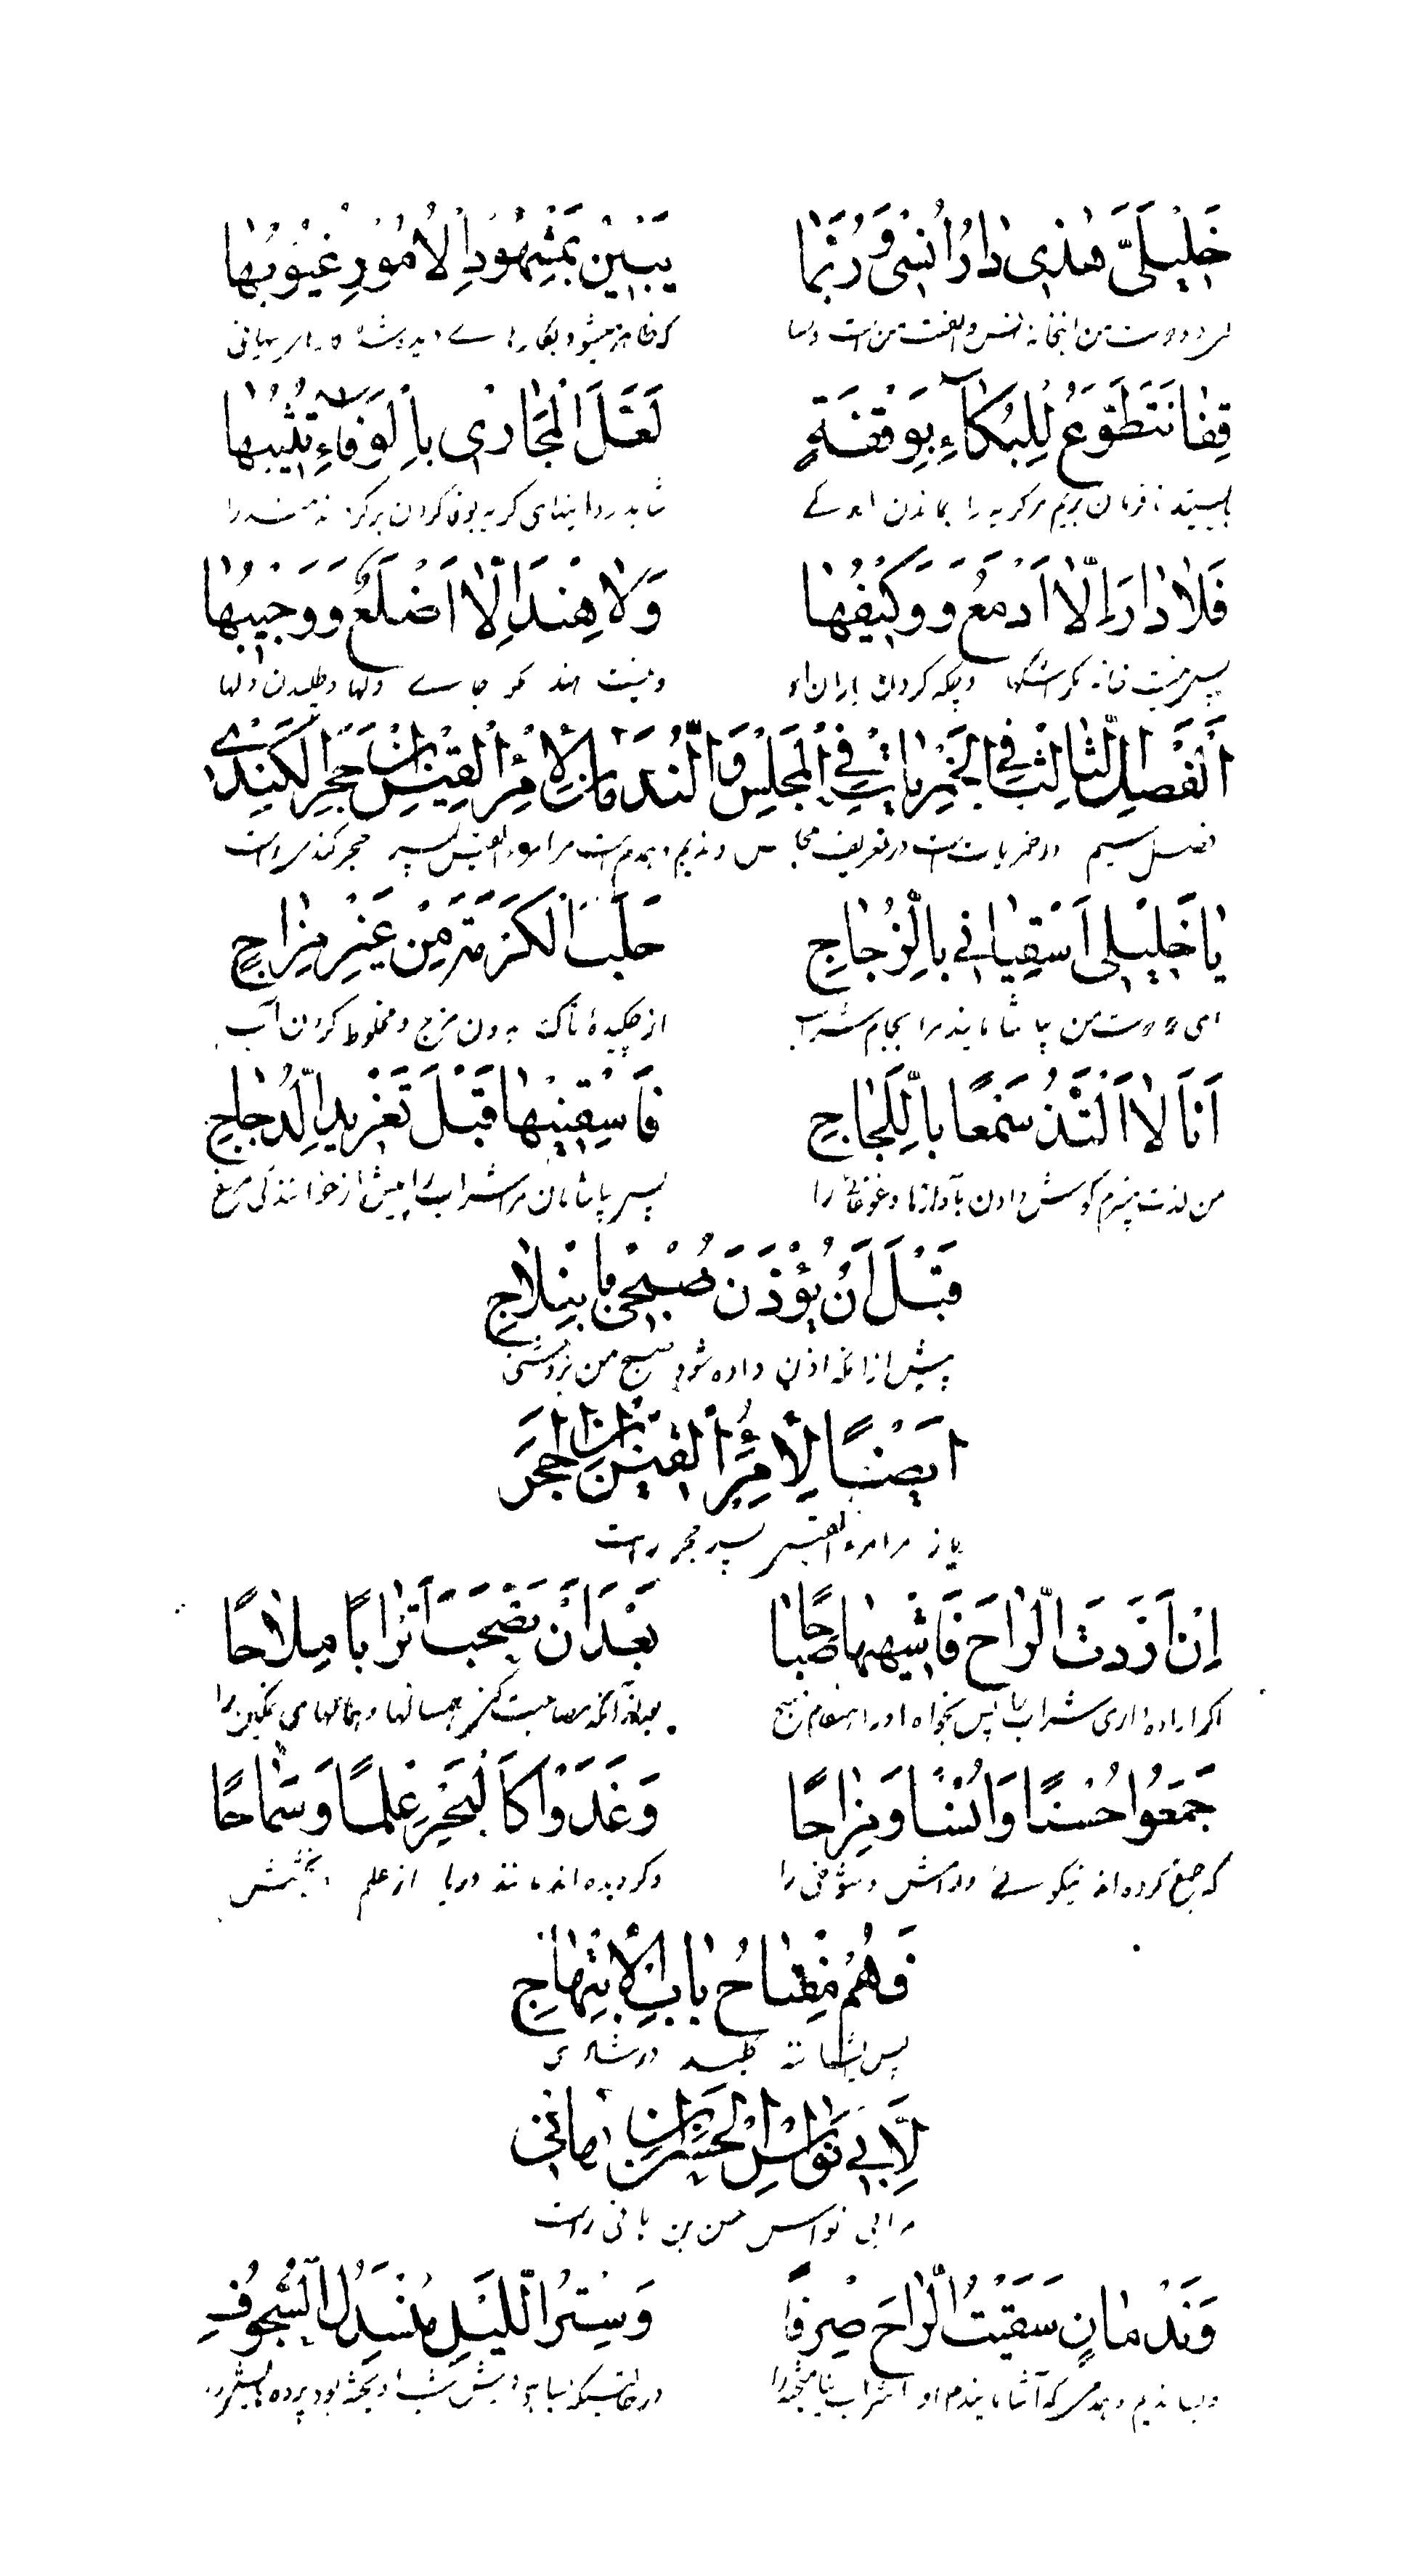 خَلِيلَيَّ هٰذِي دَارُ أُنْسِي وَرُبَّمَا يَبِينُ بِمَشْهُودِ الْأُمُورِ غُيُوبُهَا
دوست من انخانه انس و الفت من است و بسا که ظاهر میشود بکارهای دیده شده کارهای پنهانی
قِفَا نَتَطَوَّعْ لِلْبُكَآءِ بِوَقْفَةٍ لَعَلَّ الْمَجَارِي بِالْوَفَآءِ تُثِيبُهَا
بایستید تا فرمان بریم مر گریه را بماندن شاید روانیهای گریه بوفا کردن
فَلَا دَارَ إِلَّا أَدْمُعٌ وَوَكِيفُهَا وَلَا هِنْدَ إِلَّا أَضْلُعٌ وَوَجِيبُهَا
پس نیست خانه مگر اشکها و چکه کردن باران او و نیست هند مگر جای دلها و طپیدن دلها
اَلْفَصْلِ الثَّالِثْ فِي الْخَمْرِيَاتِ فِي الْمَجْلِسِ وَالنُّدَمَانِ لِأَمْرِأَ الْقَيْسِ بْنِ حَجَرِ الْكَنْدِي
فصل سیم در خمریات است در تعریف مجلس و ندیم و همدم است مر امرء القیس پسر حجر کندیراست
يَا خَلِيلِي أَسْقِيَانِي بِالزُّجَاجِ حَلَبَ الْكَرْمَةِ مِنْ غَيْرِ مِزَاجِ
ای دوست من بیاشامانید مرا بجام شراب از چکیدهٔ تاک بدون مزج و مخلوط کردن آب
اَنَا لَا اَلْتَذُّ سَمْعًا بِاللَّجَاجِ فَاسْقِنِيهَا قَبْلَ تَغْرِيدِ الدُّجَاجِ
من لذت نبرم گوش دادن بآوازها و غوغائی را پس بیاشامان مرا شراب را پیش از خوانندگی مرغ
قَبْلَ اَنْ يُؤْذَنَ صُبْحِي بِانْبِلَاجِ
پیش از آنکه اذن داده شود صبح من بروشنی
اَيْضًا لِأَمْرَأِ الْقَيْسِ بْنِ حَجَرْ
باز مر امرء القیس پسر حجر راست
اِنْ اَرَدْتَ الرَّاحَ فَاشْهِهَا صَبَاحًا بَعْدَ أَنْ تَصْحَبَ اَتْرَابًا مِلَاحًا
اگر اراده داری شراب را پس بخواه او را هنگام صبح بعد از آنکه مصاحبت کنی همسالها و همتاهای نمکین را
جَمَعُوا حُسْنًا وَاُنْسًا وَمِزَاحًا وَغَدَوْا كَالْبَحْرِ عِلْمًا وَسَمَاحًا
که جمع کرده اند نیکوئی و رامش و شوخی را و گردیده اند مانند دریا از علم و بخشش
فَهُمُ مِفْتَاحُ بَابِ الْاِبْتِهَاجِ
پس ایشانند کلید در شادی
لِأَبِي نَوَّاسْ الْحَسَنِ بْنِ هَانِي
مر ابی نواس حسن بن هانی راست
وَنَدْمَانٍ سَقَيْتُ الرَّاحَ صِرْفًا وَسِتْرُ اللَّيْلِ مُنْسَدِلُ السُّجُوفِ
و بسا ندیم و همدمی که آشامانیدم او را شراب در حالتیکه شب آویخته بود پرده